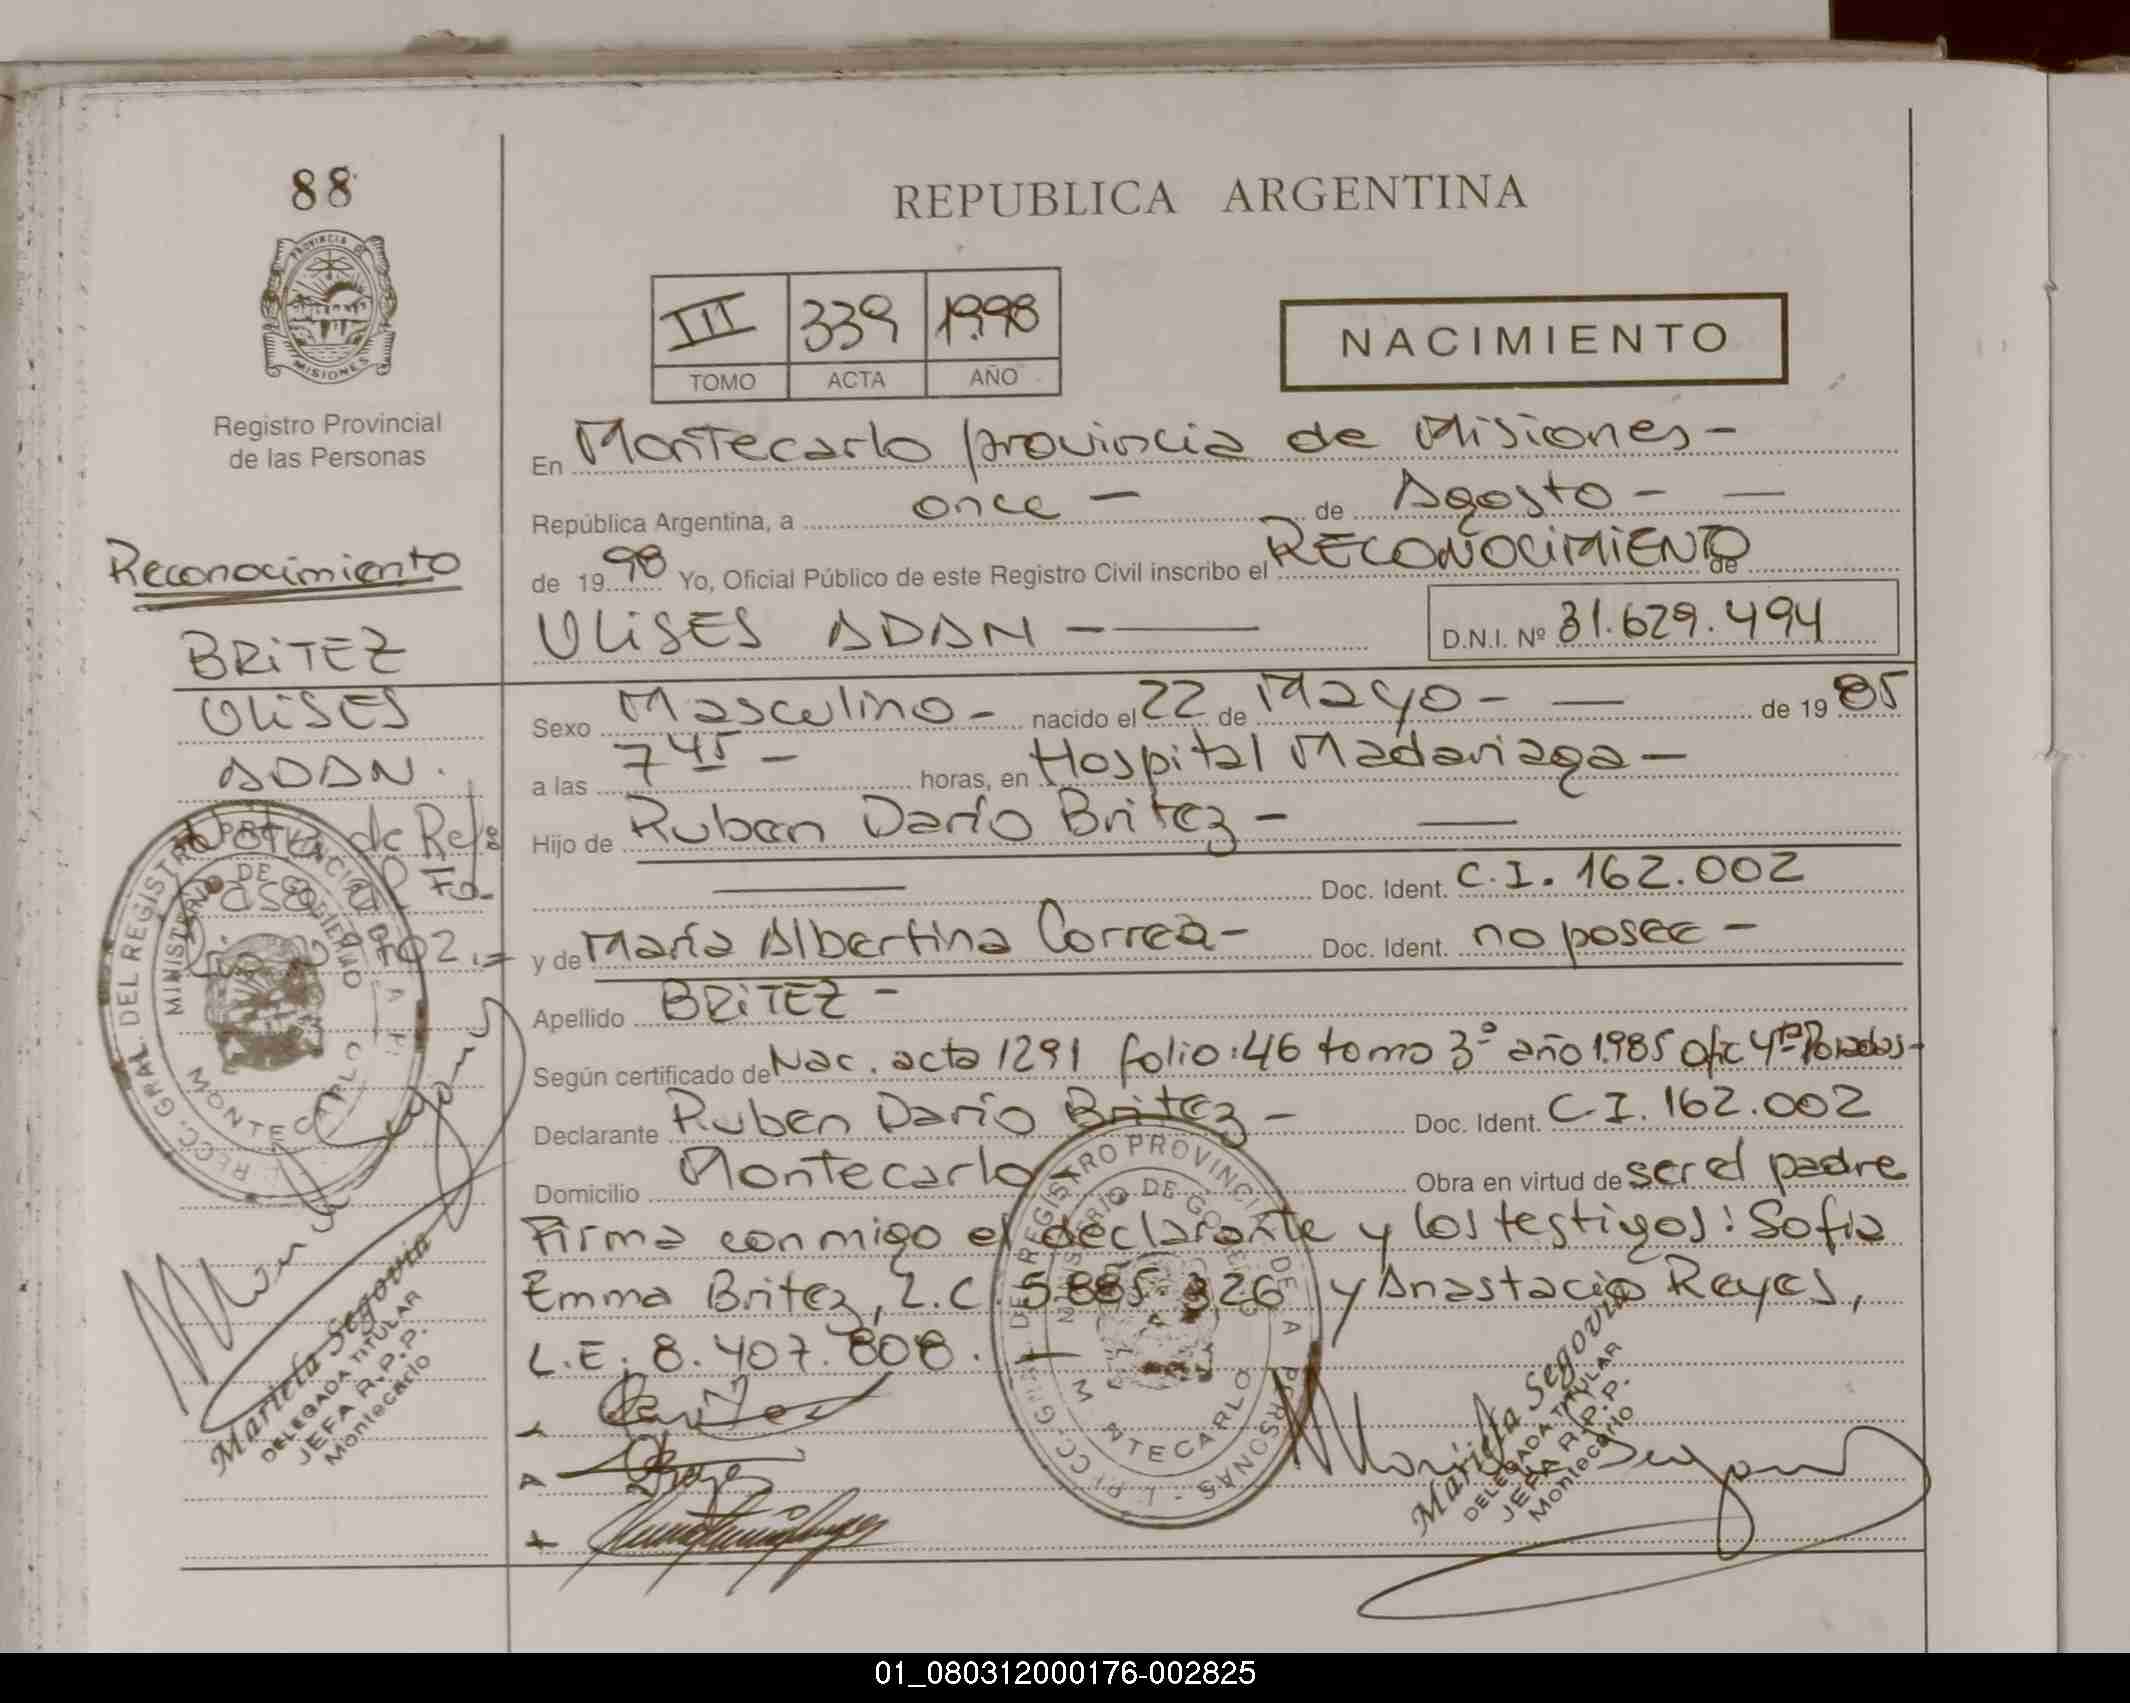 88
REPUBLICA ARGENTINA
PROVINCIA DE
MISIONES
Registro Provincial
de las Personas
III 339 1998
TOMO ACTA AÑO
NACIMIENTO
En Montecarlo provincia de Misiones -
República Argentina, a once - de Agosto - -
de 19 98 Yo, Oficial Público de este Registro Civil inscribo el RECONOCIMIENTO de
ULISES ADAN - D.N.I. Nº 31.629.494
Reconocimiento
BRITEZ
ULISES
ADAN.
Nota de Ref.
Sexo Masculino - nacido el 22 de Mayo - - de 19 85
a las 7 45 - horas, en Hospital Madariaga -
Hijo de Ruben Darío Britez - -
Doc. Ident. C.I. 162.002
y de María Albertina Correa - Doc. Ident. no posee -
Apellido BRITEZ -
Según certificado de Nac. acta 1291 folio: 46 tomo 3º año 1985 Ofic 4ta Posadas -
Declarante Ruben Darío Britez - Doc. Ident. C.I. 162.002
Domicilio Montecarlo - Obra en virtud de ser el padre
Firma conmigo el declarante y los testigos: Sofia
Emma Britez, L.C. 5.885.326 y Anastacio Reyes,
L.E. 8.407.808. -
REGISTRO PROVINCIAL DE LA PERSONAS
MINISTERIO DE GOBIERNO
MONTECARLO
Mariela Segovia
DELEGADA TITULAR
JEFA R.P.P.
Montecarlo
Mariela Segovia
DELEGADA TITULAR
JEFA R.P.P.
Montecarlo
01_080312000176-002825